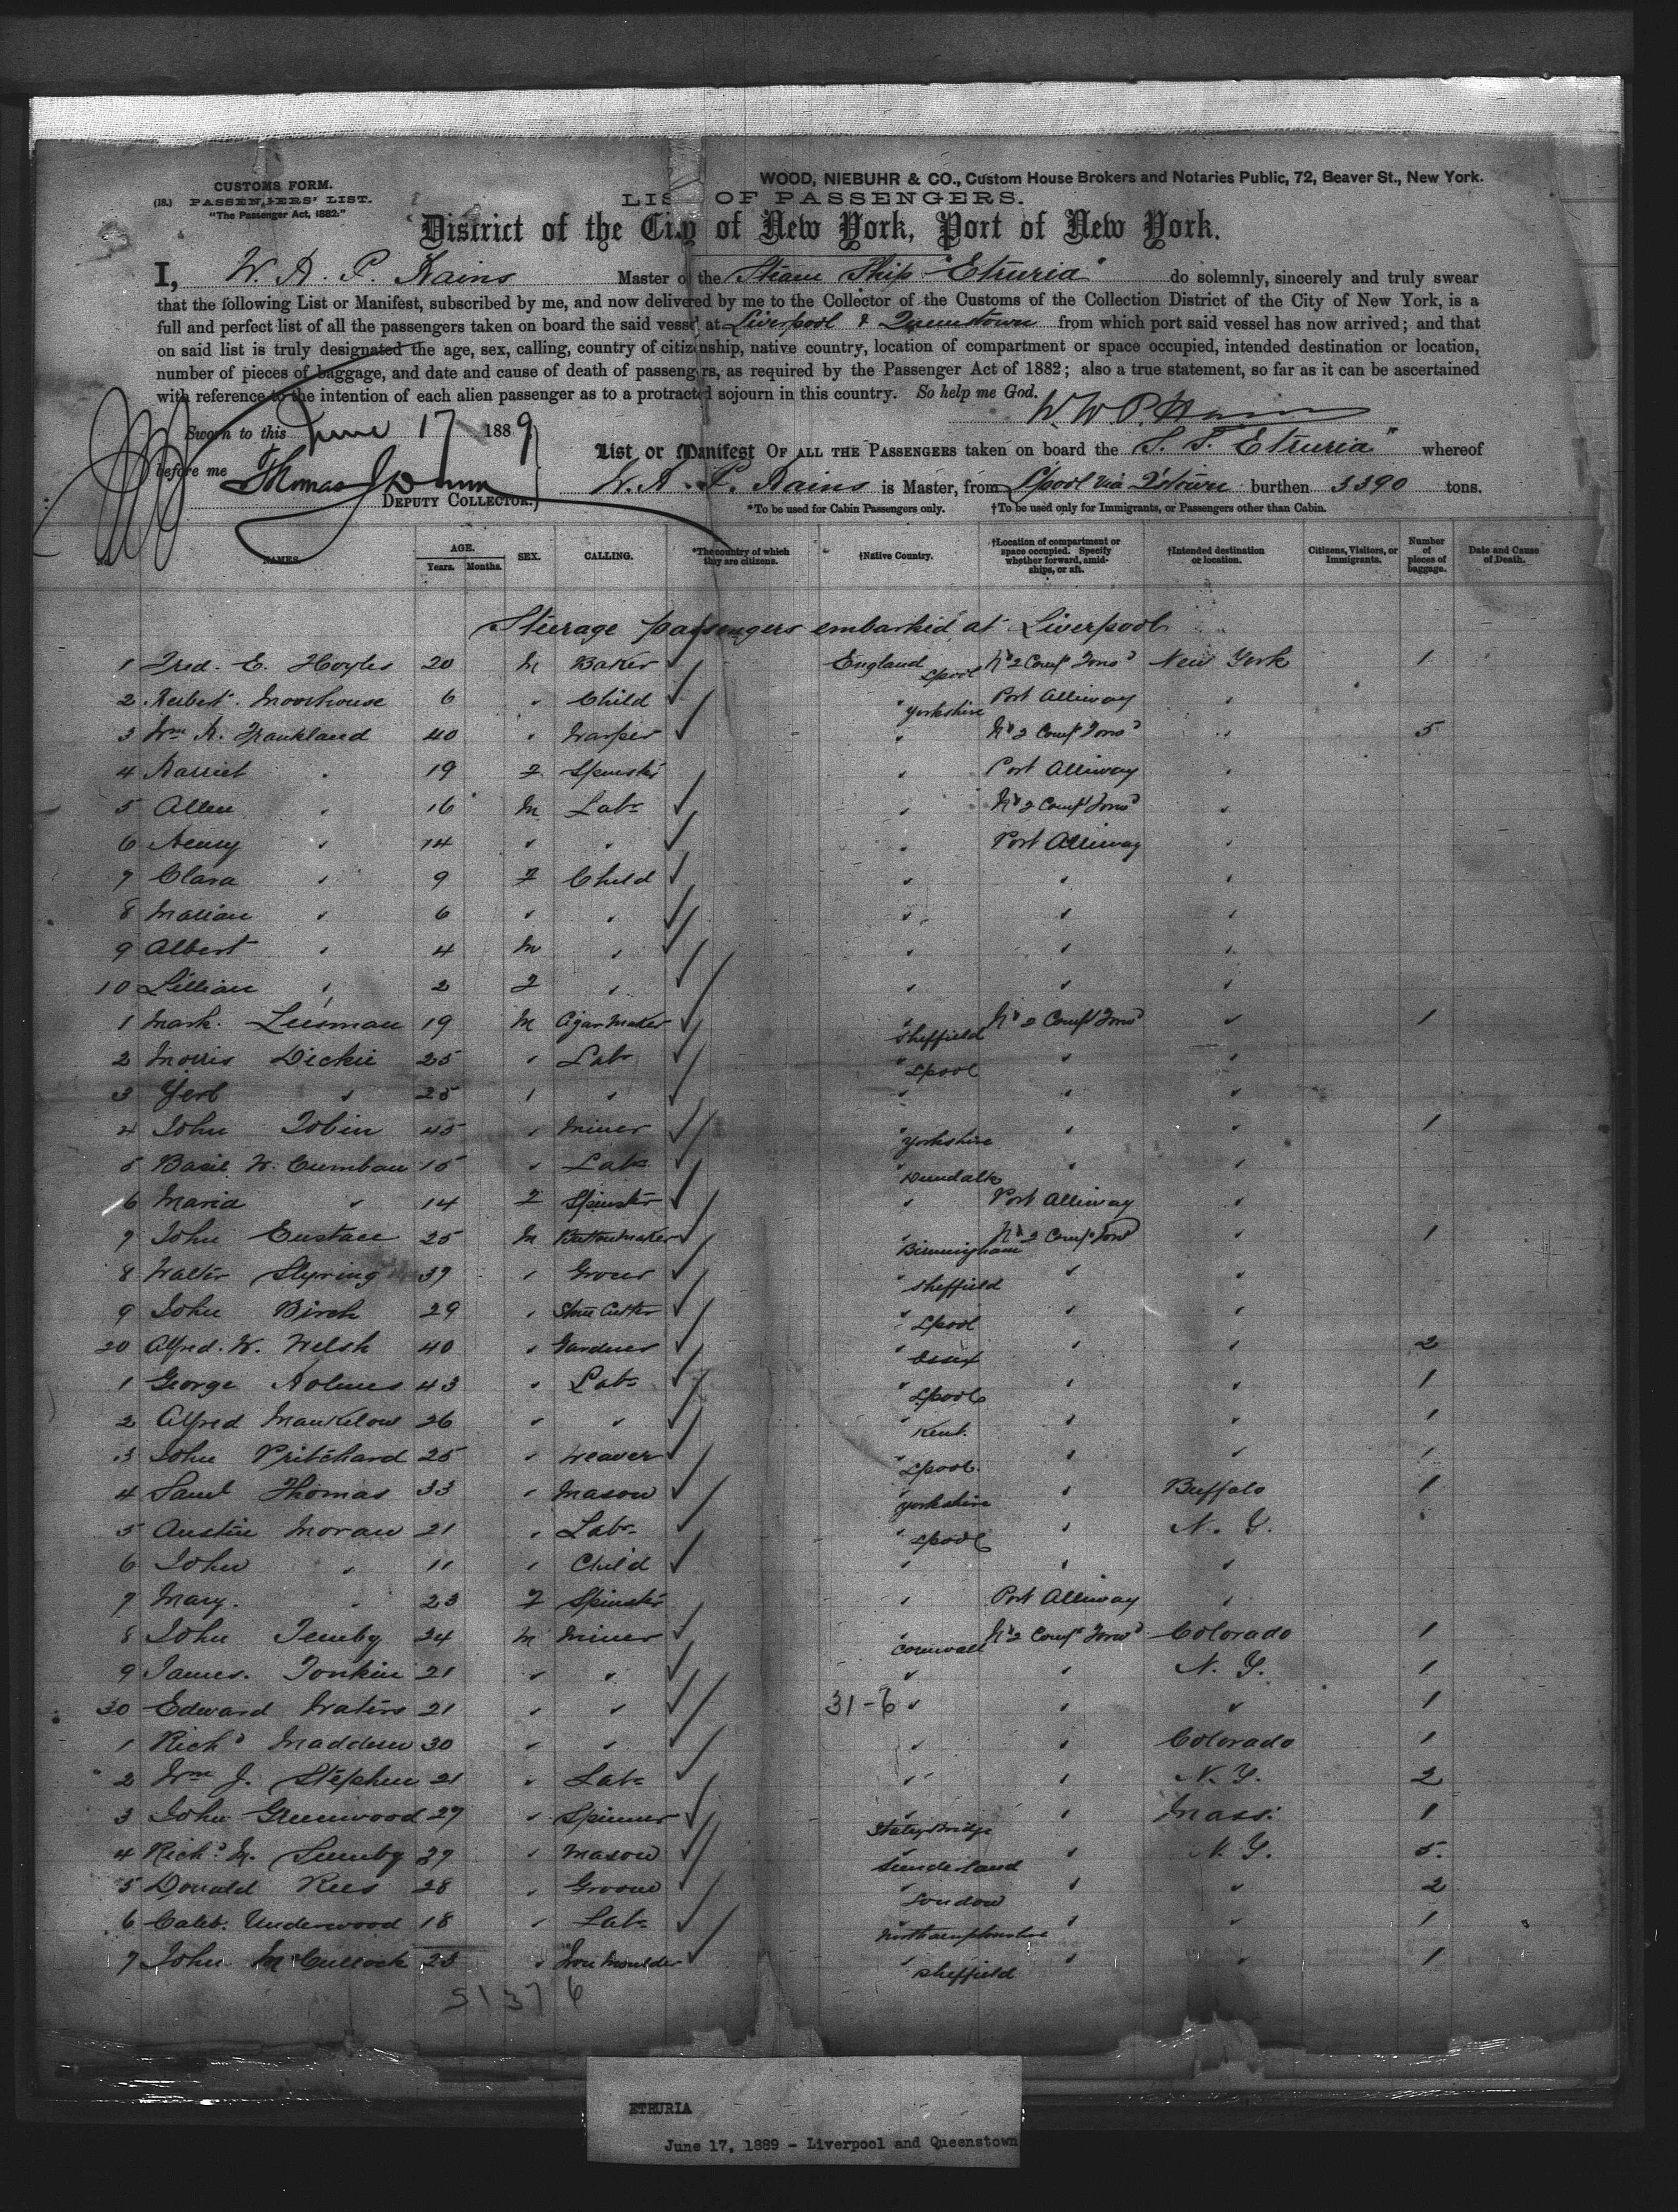 WOOD, NIEBUHR & CO., Custom House Brokers and Notaries Public, 72, Beaver St., New York.
CUSTOMS FORM.
(18.) PASSENGERS' LIST.
"The Passenger Act, 1882."
LIS OF PASSENGERS.
District of the City of New York, Port of New York.
I, W. H. P. Hains Master of the Steam Ship "Etruria" do solemnly, sincerely and truly swear
that the following List or Manifest, subscribed by me, and now delivered by me to the Collector of the Customs of the Collection District of the City of New York, is a
full and perfect list of all the passengers taken on board the said vessel at Liverpool & Queenstown from which port said vessel has now arrived; and that
on said list is truly designated the age, sex, calling, country of citizenship, native country, location of compartment or space occupied, intended destination or location,
number of pieces of baggage, and date and cause of death of passengers, as required by the Passenger Act of 1882; also a true statement, so far as it can be ascertained
with reference to the intention of each alien passenger as to a protracted sojourn in this country. So help me God.
Sworn to this June 17 1889
before me Thomas J Dunn
DEPUTY COLLECTOR.
List or Manifest OF ALL THE PASSENGERS taken on board the S. S. Etruria" whereof
W. H. P. Hains is Master, from L'pool via Q'town burthen 3390 tons.
*To be used for Cabin Passengers only. †To be used only for Immigrants, or Passengers other than Cabin.
NAMES. AGE. Years. Months. SEX. CALLING. *The country of which they are citizens. †Native Country. †Location of compartment or space occupied. Specify whether forward, amidships, or aft. †Intended destination or location. Citizens, Visitors, or Immigrants. Number of pieces of baggage. Date and Cause of Death.
Steerage passengers embarked at Liverpool
1 Fred. E. Hoyles 20 M Baker England Lpool No 2 Compt Forwd New York 1
2 Moorhouse 6 " Child " Yorkshire Port Alliway "
3 Wm H. Frankland 40 " Warper " No 2 Compt Forwd " 5
4 Harriet " 19 F Spinster " Port Alliway "
5 Allen " 16 M Labr " No 2 Compt Forwd "
6 Henry " 14 " " " Port Alliway "
7 Clara " 9 F Child " " "
8 Marian " 6 " " " " "
9 Albert " 4 M " " " "
10 Lillian " 2 F " " " "
1 Mark. Leesman 19 M Cigar Maker " Sheffield No 2 Compt Forwd " 1
2 Morris Dickie 25 " Labr " Lpool " "
3 " 25 " " " " "
4 John Tobin 45 " Miner " Yorkshire " " 1
5 Basil W. Cumbau 15 " Labr " Dundalk " "
6 Maria " 14 F Spinster " Port Alliway "
7 John Eustace 25 M Button Maker " Birmingham No 2 Compt Forwd " 1
8 Walter Slyring 37 " Grocer " Sheffield " "
9 John Birch 29 " Stone Cutter " Lpool " "
20 Alfred. W. Welsh 40 " Gardener " Essex " " 2
1 George Holmes 43 " Labr " Lpool " " 1
2 Alfred Mankelow 26 " " " Kent. " " 1
3 John Pritchard 25 " Weaver " Lpool. " " 1
4 Saml Thomas 33 " Mason " Yorkshire " Buffalo 1
5 Austin Moran 21 " Labr " Lpool " N. Y.
6 John " 11 " Child " " "
7 Mary. " 23 F Spinster " Port Alliway "
8 John Temby 24 M Miner " Cornwall No 2 Compt Forwd Colorado 1
9 James. Tonkin 21 " " " " N. Y. 1
30 Edward Waters 21 " " 31-6 " " " 1
1 Richd Maddern 30 " " " " Colorado 1
2 Wm J. Stephen 21 " Labr " " N. Y. 2
3 John Greenwood 27 " Spinner " Staleybridge " Mass: 1
4 Richd M. 37 " Mason " Sunderland " N. Y. 5.
5 Donald Rees 28 " Groom " London " " 2
6 Caleb. Underwood 18 " Labr " Northamptonshire " " 1
7 John McCullock 23 " Iron Moulder " Sheffield " " 1
51376
ETRURIA
June 17, 1889 - Liverpool and Queenstown